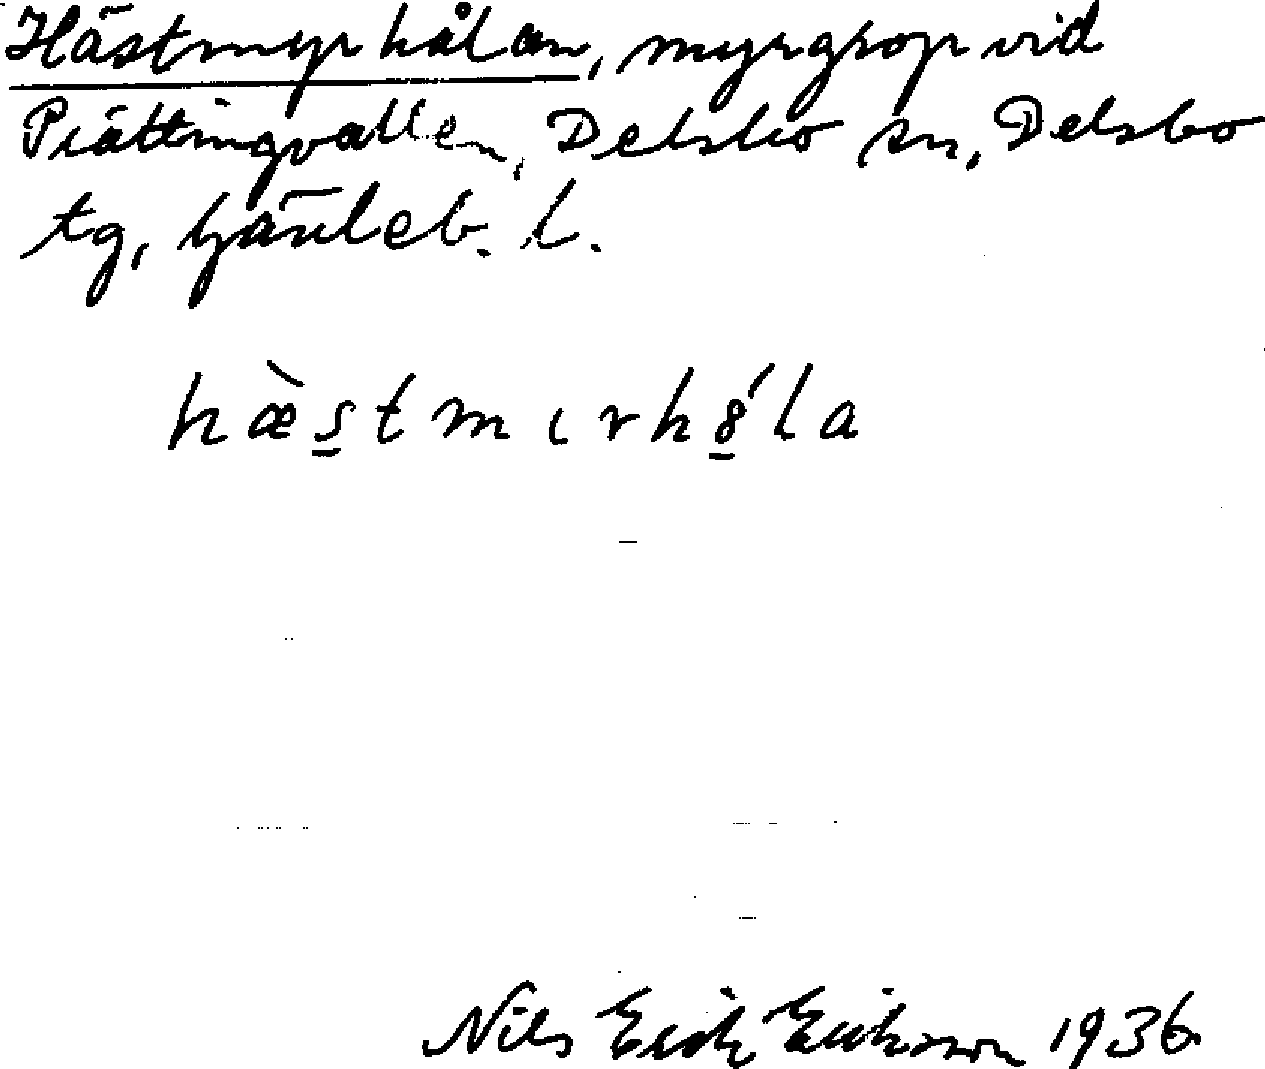 Hästmyrhålan, myrgrop vid
Prättingvallen, Delsbo sn, Delsbo
tg, Gävleb. l.
hæ̀s̱tmɩrhȣ̱́la
Nils Erik Eriksson 1936